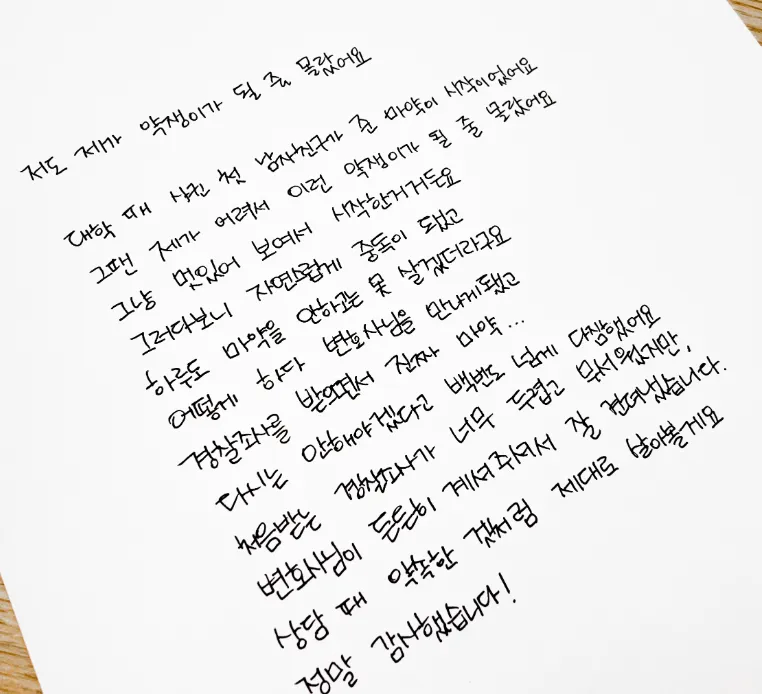 저도 제가 약쟁이가 될 줄 몰랐어요
대학 때 사귄 첫 남자친구가 준 마약이 시작이었어요
그땐 제가 어려서 이런 약쟁이가 될 줄 몰랐어요
그냥 멋있어 보여서 시작한거거든요
그러다보니 자연스럽게 중독이 됐고
하루도 마약을 안하고는 못 살겠더라구요
어떻게 하다 변호사님을 만나게됐고
경찰조사를 받으면서 진짜 마약...
다시는 안해야겠다고 백번도 넘게 다짐했어요
처음받는 경찰조사가 너무 두렵고 무서웠지만,
변호사님이 든든히 계셔주셔서 잘 견뎌냈습니다.
상담 때 약속한 것처럼 제대로 살아볼게요
정말 감사했습니다!